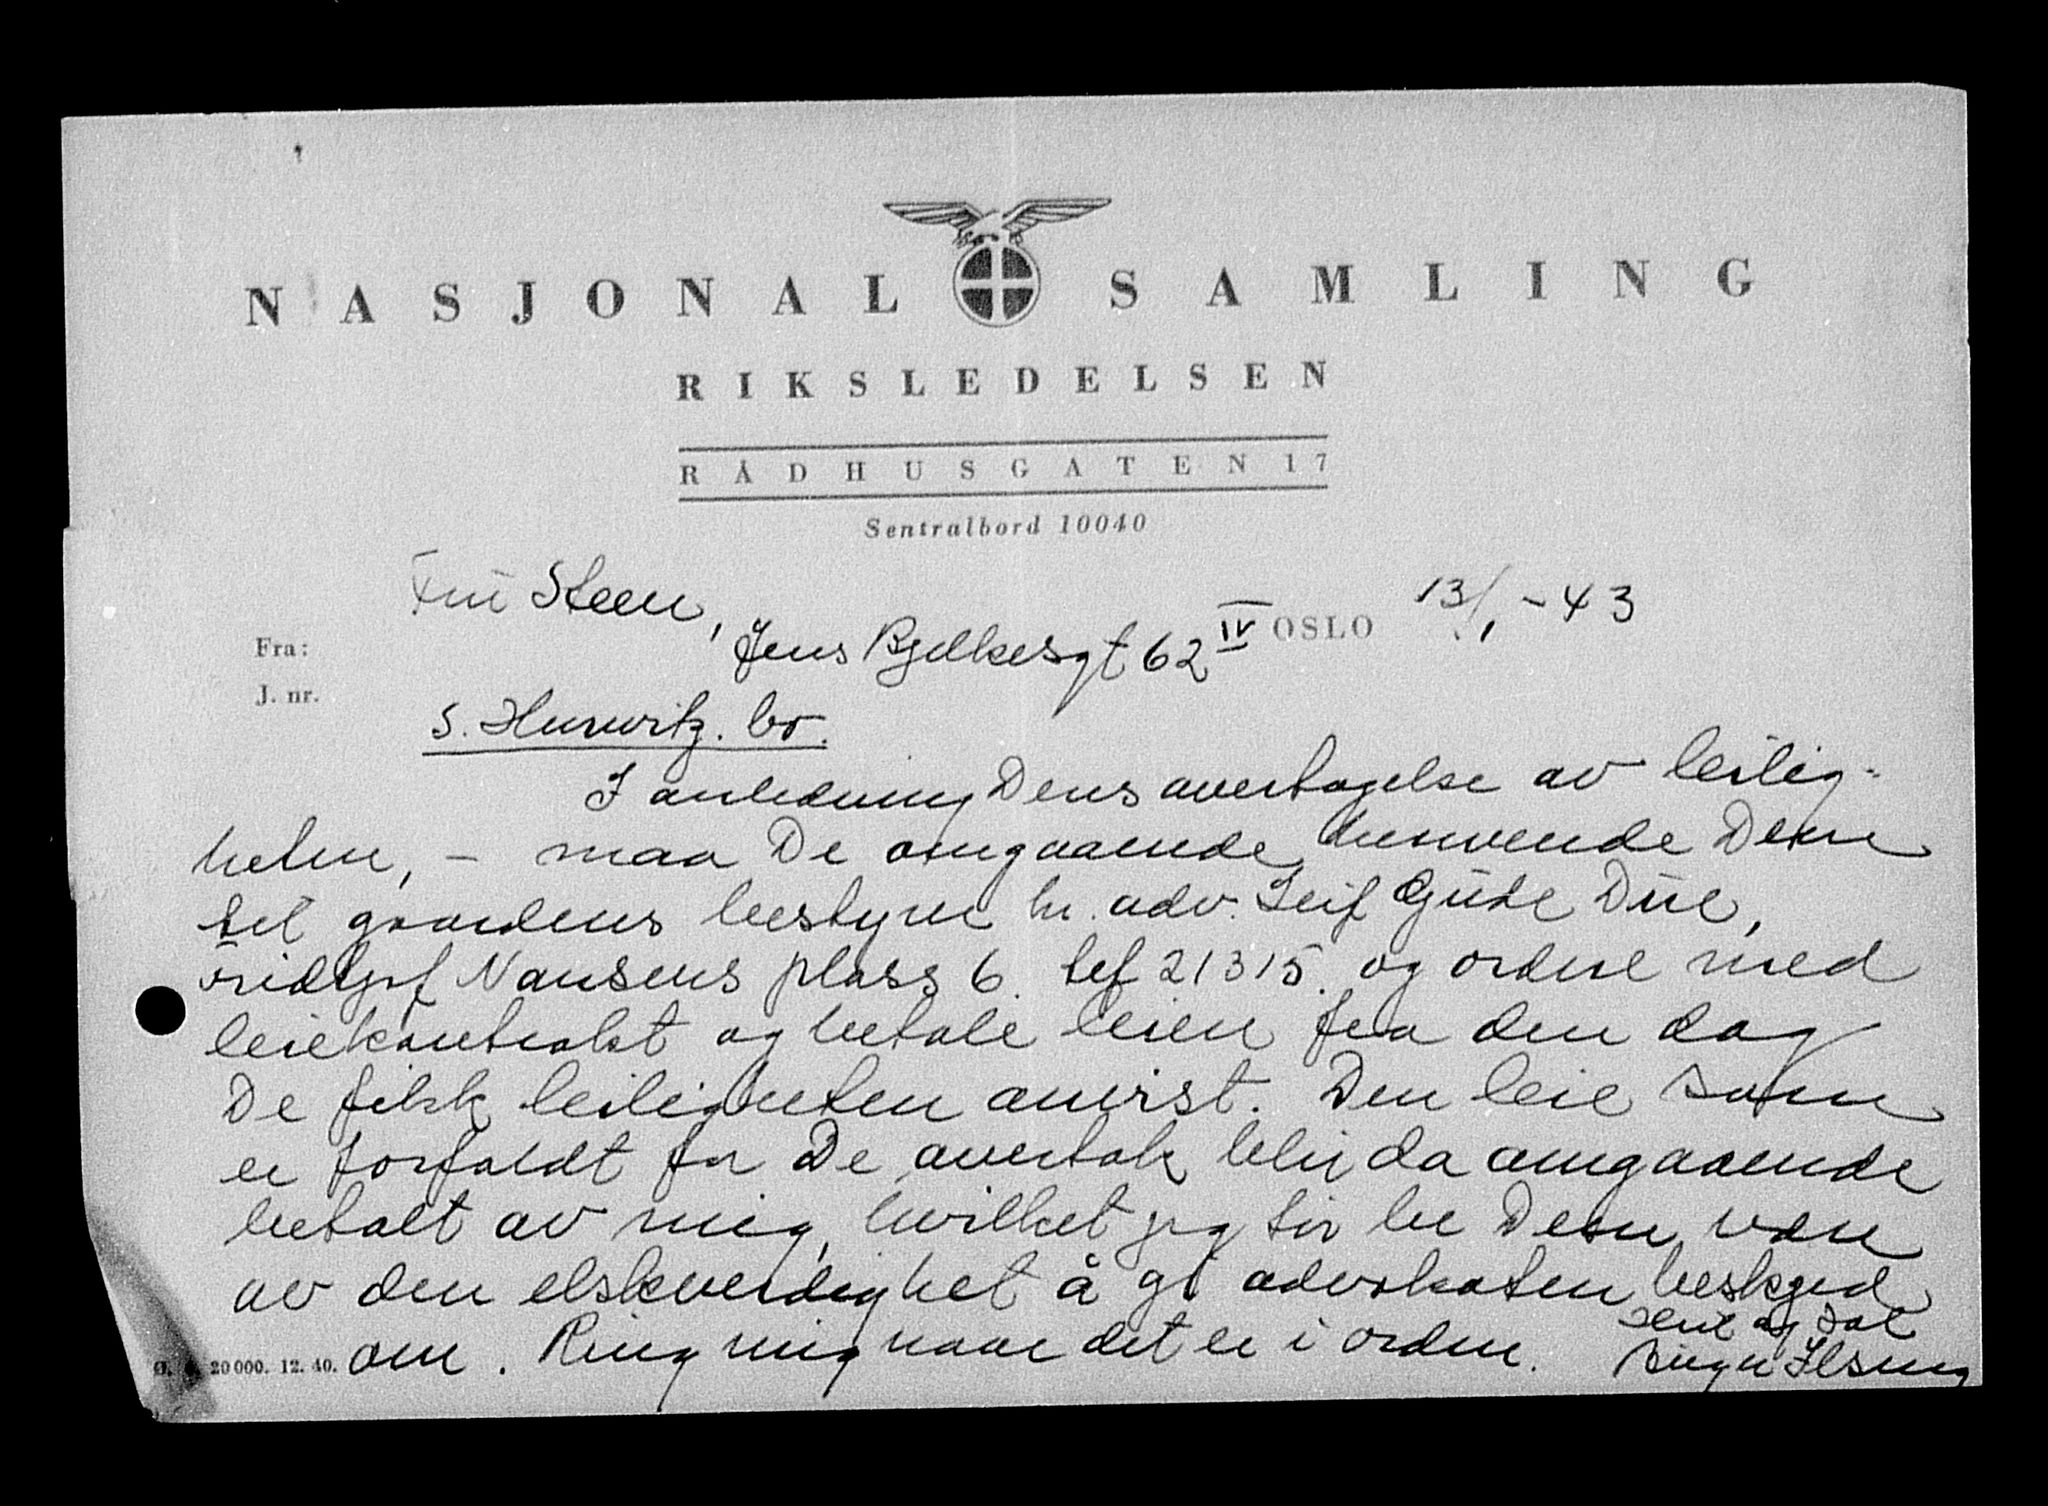 NASJONAL SAMLING
RIKSLEDELSEN
RÅDHUSGATEN 17
Sentralbord 10040
Fru Steen,
Jens Bjelkesgt 62 IV OSLO 13/1 - 43
Fra:
J. nr.
S. Hurwitz. bo.
I anledning Deres overtagelse av leilig-
heten, - maa De omgaaende henvende Dem
til gaardens bestyrer hr. adv. Leif Gude Due,
Fridtjof Nansens plass 6. tlf 21315. og ordne med
leiekontrakt og betale leien fra den dag
De fikk leiligheten anvist. Den leie som
er forfaldt før De overtok blir da omgaaende
betalt av mig, hvilket jeg tør be Dem være
av den elskverdighet å gi advokaten beskjed
om. Ring mig naar det er i orden.
Heil og Sæl
Signe
20 000. 12. 40.